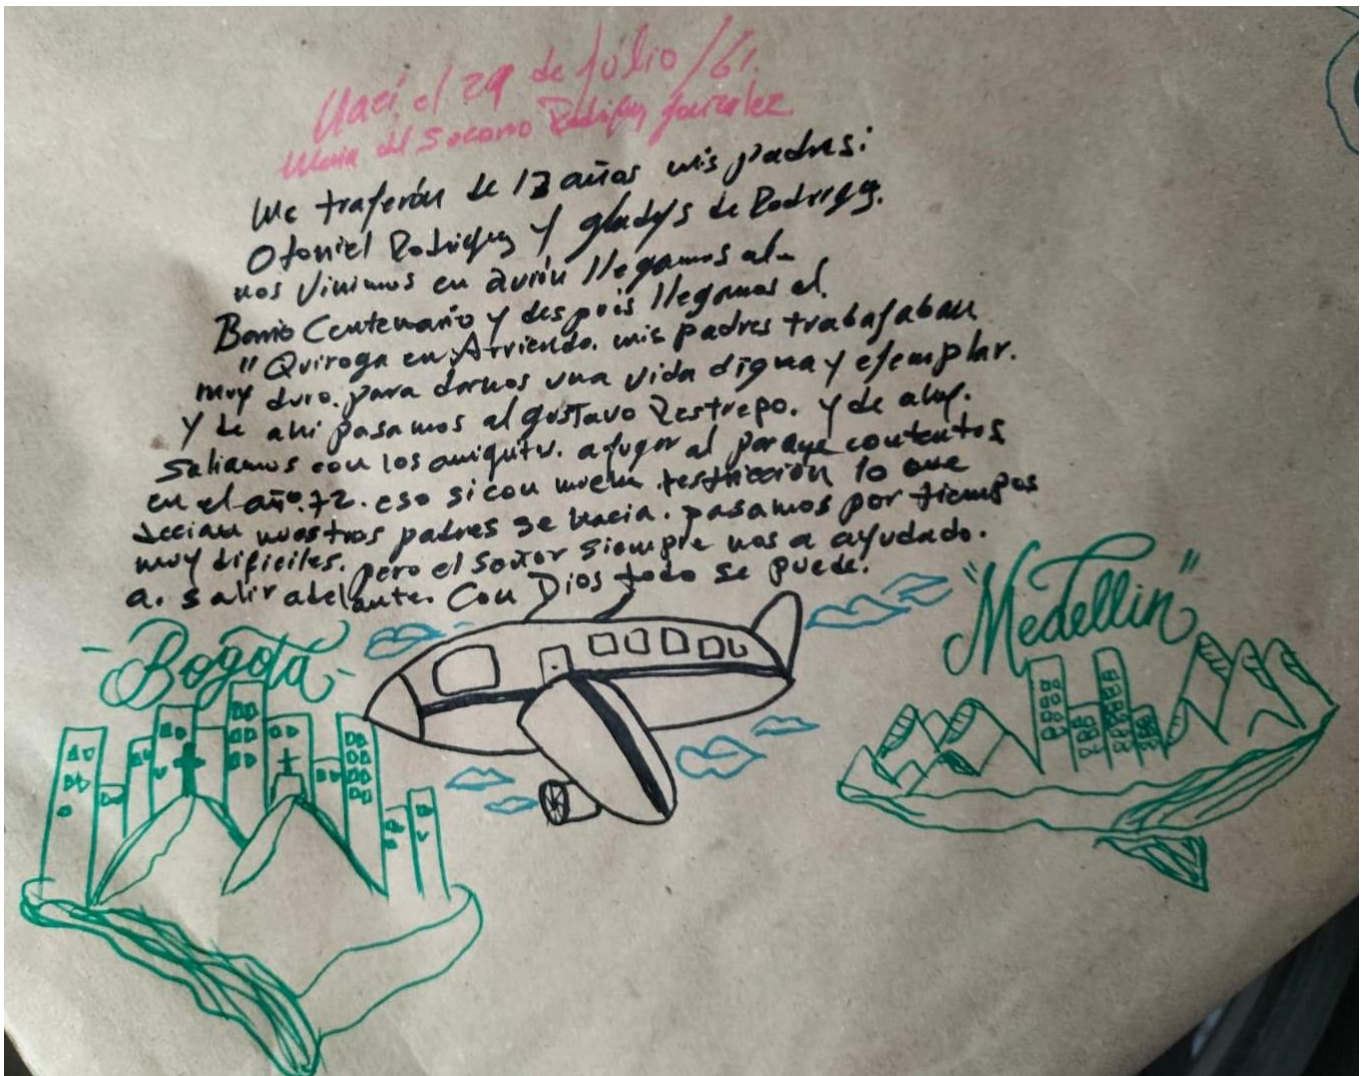 Nací el 29 de Julio /61.
Maria del Socorro Rodriguez Gonzalez
Me trajerón de 13 años mis padres:
Otoniel Rodriguez y gladys de Rodriguez.
nos Vinimos en avión llegamos al-
Barrio Centenario y despoés llegamos al.
"Quiroga en Arriendo. mis padres trabajaban
muy duro. para darnos una vida digna y ejemplar.
Y de ahi pasamos al gustavo Restrepo. y de ahy.
Saliamos con los amiguitos. a jugar al parque contentos
en el año. 72. eso si con mucha restricción lo que
decian nuestros padres se hacia. pasamos por tiempos
muy dificiles. pero el Señor Siempre nos a ayudado.
a. salir adelante. Con Dios todo se puede.
"Medellin"
-Bogotá-